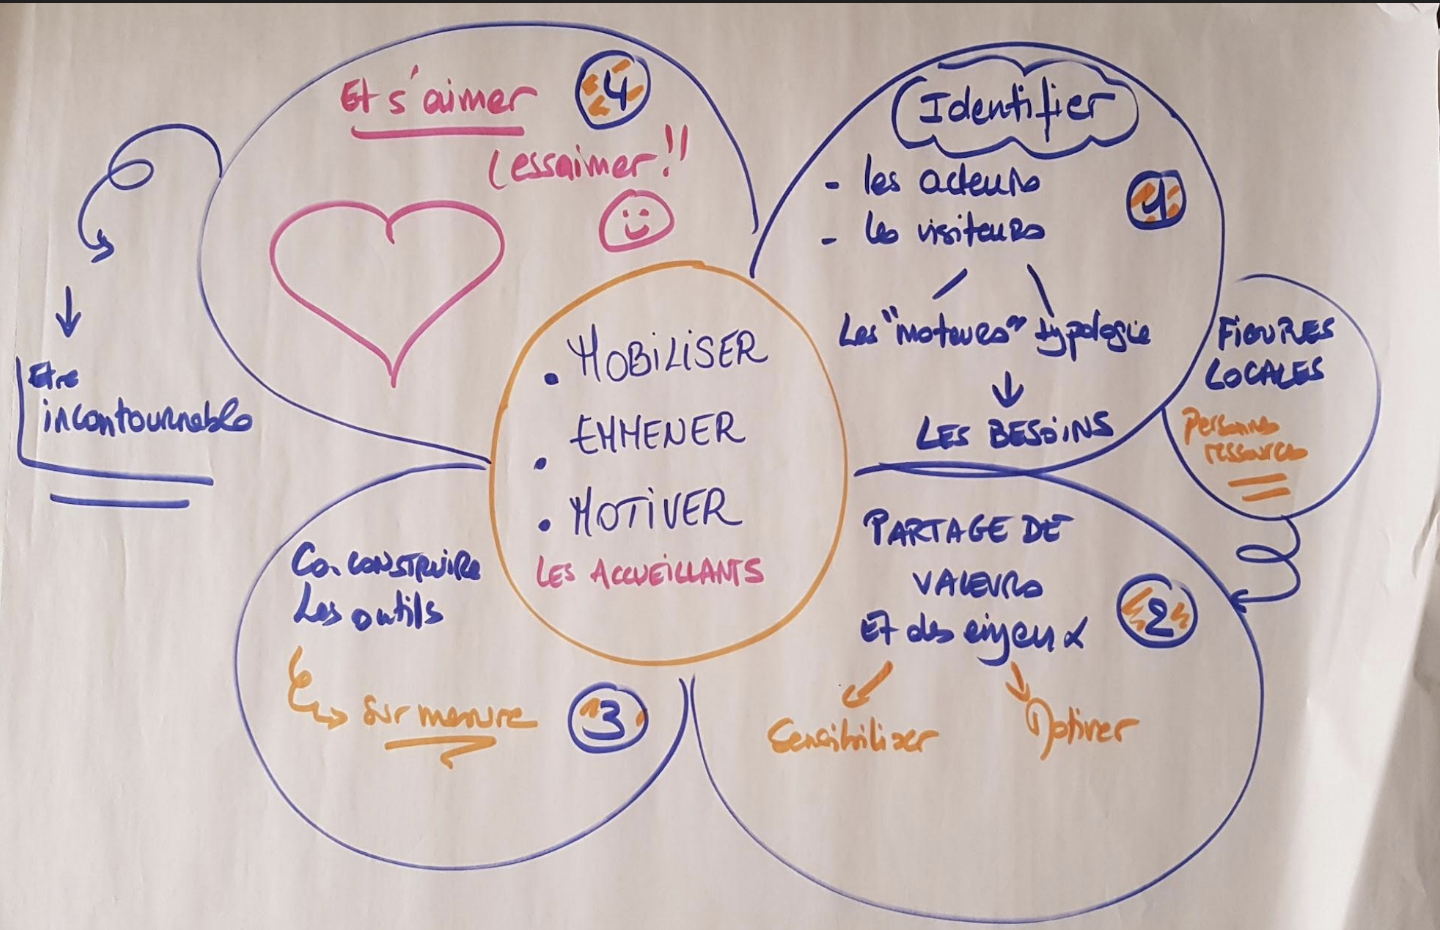 Et s'aimer
4
(essaimer!!
Identifier
- les acteurs
- les visiteurs
1
Les "moteurs" typologie
LES BESOINS
FIGURES
LOCALES
Personnes
ressources
Etre
incontournables
• MOBILISER
• EMMENER
• MOTIVER
LES ACCUEILLANTS
PARTAGE DE
VALEURS
Et des enjeux
2
Sensibiliser
Motiver
Co-construire
Les outils
Sur mesure
3